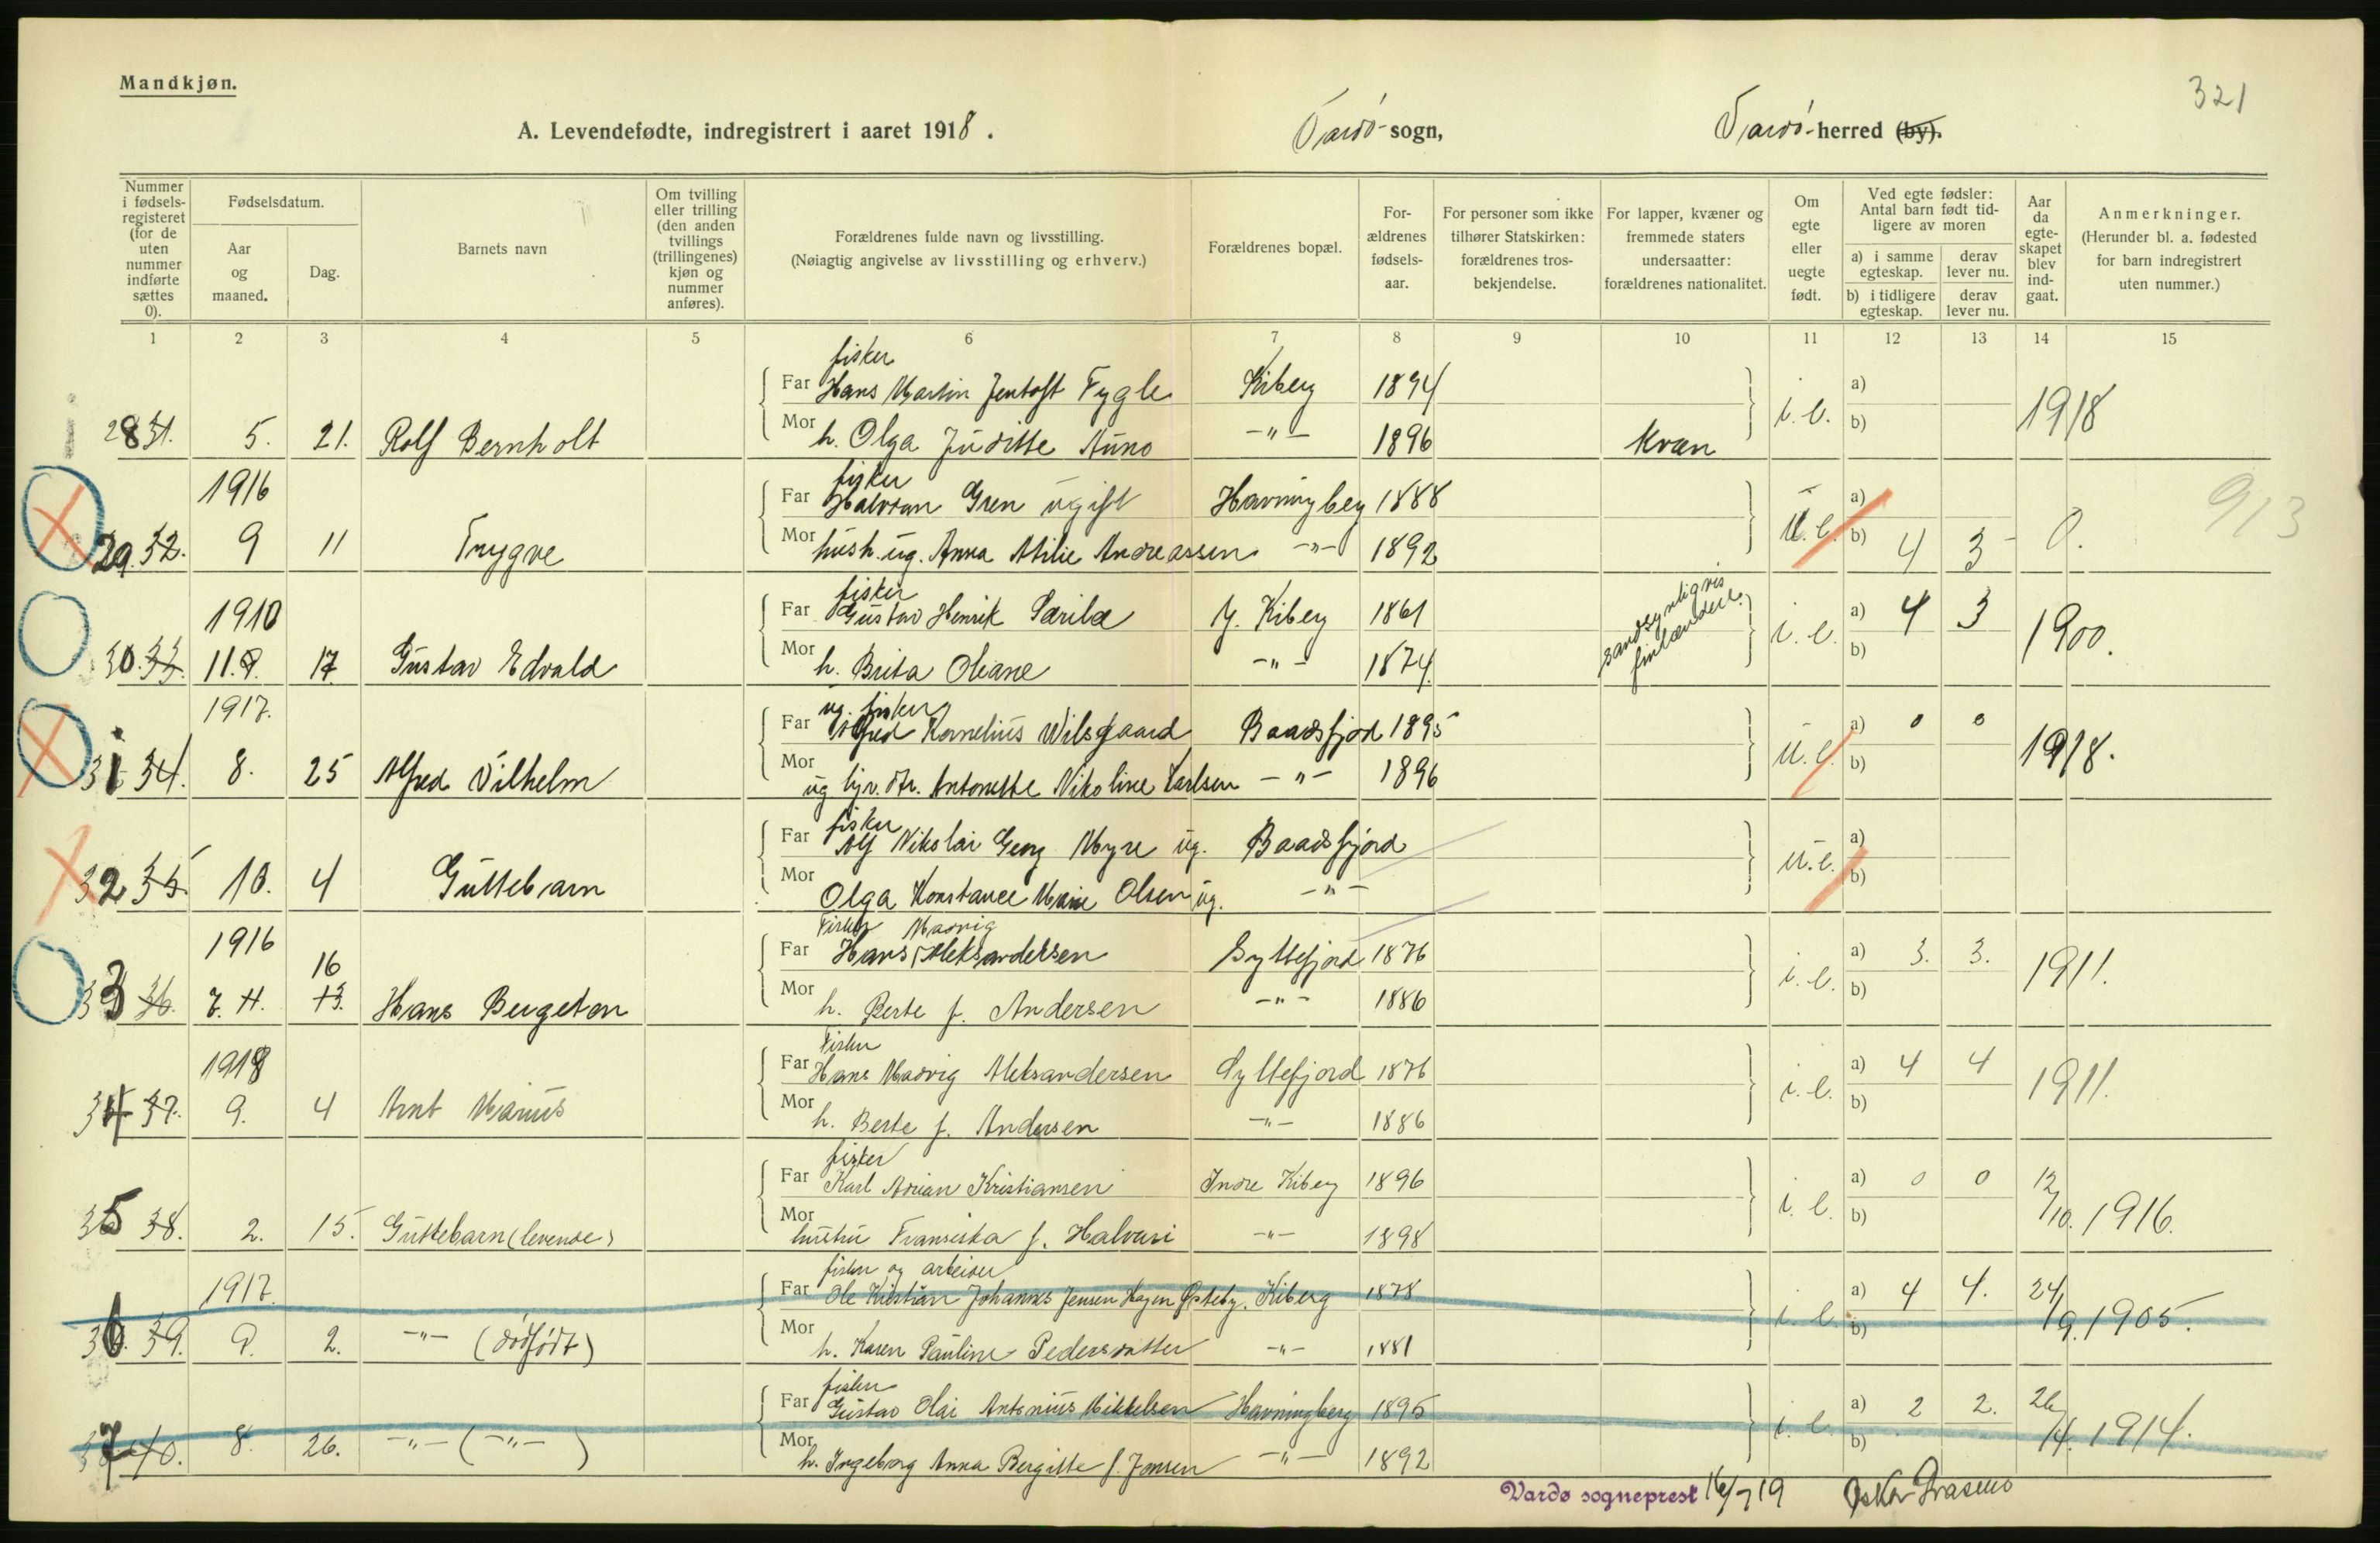 Mandkjøn.
321
A. Levendefødte, indregistrert i aaret 1918. Vardö sogn, Vardö herred (by).
Nummer i fødselsregisteret (for de uten nummer indførte sættes 0).
Fødselsdatum.
Aar og maaned.
Dag.
Barnets navn
Om tvilling eller trilling (den anden tvillings (trillingenes) kjøn og nummer anføres).
Forældrenes fulde navn og livsstilling. (Nøiagtig angivelse av livsstilling og erhverv.)
Forældrenes bopæl.
Forældrenes fødselsaar.
For personer som ikke tilhører Statskirken: forældrenes trosbekjendelse.
For lapper, kvæner og fremmede staters undersaatter: forældrenes nationalitet.
Om egte eller uegte født.
Ved egte fødsler: Antal barn født tidligere av moren
a) i samme egteskap. derav lever nu.
b) i tidligere egteskap. derav lever nu.
Aar da egteskapet blev indgaat.
Anmerkninger. (Herunder bl. a. fødested for barn indregistrert uten nummer.)
1 2 3 4 5 6 7 8 9 10 11 12 13 14 15
fisker
Far Hans Martin Jentoft Fygle Kiberg 1894 a)
28 31. 5. 21. Rolf Bernholt Mor h. Olga Juditte Auno -"- 1896 kvæn i. e. b) 1918
1916 fisker
Far Halvdan Gren ugift Havningberg 1888 a) 913
29 32. 9 11 Trygve Mor hush. ug. Anna Atilie Andreassen -"- 1892 u. e. b) 4 3 0.
1910 fisker
Far Gustav Henrik Särilä Y. Kiberg 1861 sandsynligvis finlændere. a) 4 3
30. 33. 11. 9. 17 Gustav Edvald Mor h. Brita Oleane -"- 1874. i. e. b) 1900.
1917. ug. fisker
Far Alfred Kornelius Wilsgaard Baadsfjod 1895 a) 0 0
31 34. 8. 25 Alfred Vilhelm Mor ug tjn. dtr. Antonette Nikoline Karlsen -"- 1896 u. e. b) 1918.
fisker
Far Alf Nikolai Georg Myre ug. Baadsfjord a)
32 35 10. 4 Guttebarn Mor Olga Konstance Marie Olsen ug. -"- u. e. b)
1916 Fisker Madvig
16 Far Hans Aleksandersen Syltefjord 1876 a) 3. 3.
33 36. 7. 11. 13. Hans Bergeton Mor h. Berte f. Andersen -"- 1886 i. e. b) 1911.
1918 Fisker
Far Hans Madvig Aleksandersen Syltefjord 1876 a) 4 4
34 37. 9. 4 Arnt Marius Mor h. Berte f. Andersen -"- 1886 i. e. b) 1911.
fisker
Far Karl Adrian Kristiansen Indre Kiberg 1896 a) 0 0
35 38. 2. 15. Guttebarn (levende) Mor hustru Fransiska f. Halvari -"- 1898 i. e. b) 12/10. 1916.
1917. fisker og arbeider
Far Ole Kristian Johannes Jensen Hagen Østeby. Kiberg 1878 a) 4 4.
36. 39. 9. 2. -"- (dödfödt) Mor h. Karen Pauline Pedersdatter -"- 1881 i. e. b) 24/9. 1905.
fisker
Far Gustav Olai Antonius Mikkelsen Havningberg 1895 a) 2 2.
37 40. 8. 26. -"- (-"-) Mor h. Ingeborg Anna Bergitte f. Jensen -"- 1892 i. e. b) 26/4. 1914.
Vardø sogneprest 16/7 19